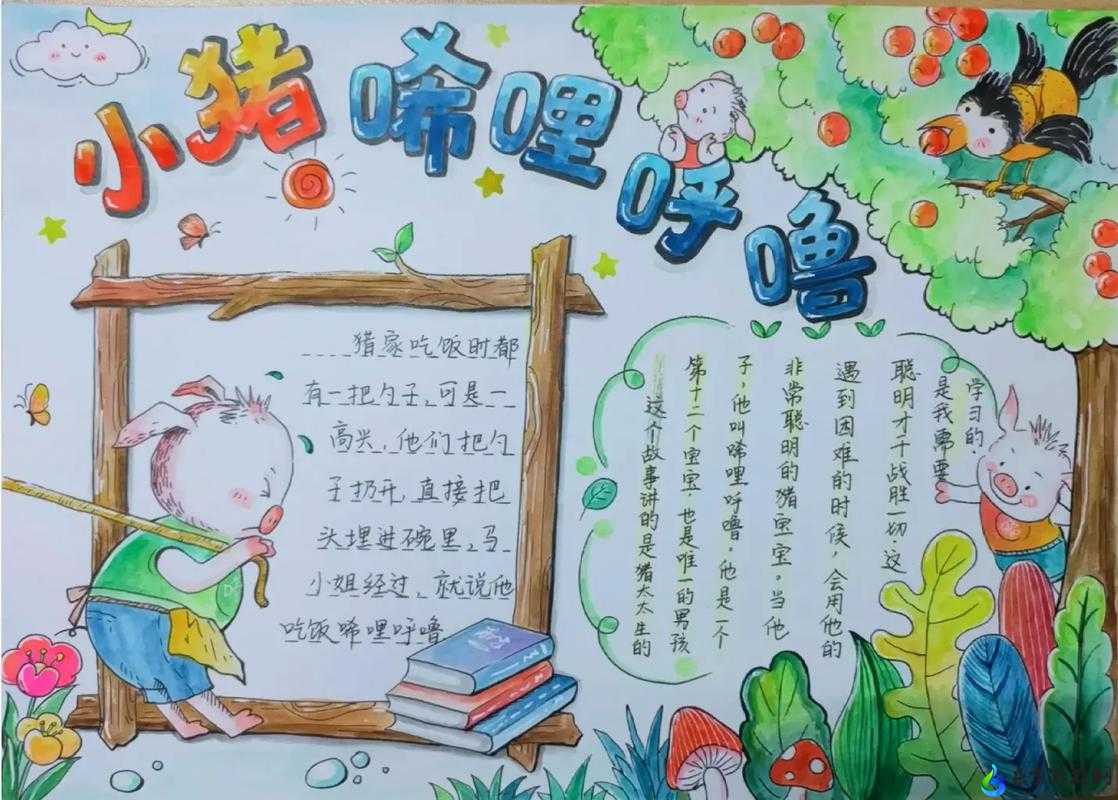 小猪唏哩呼噜
猪家吃饭时都
有一把勺子,可是一
高兴,他们把勺
子扔开,直接把
头埋进碗里,马
小姐经过,就说他
吃饭唏哩呼噜
这个故事讲的是猪太太生的
第十二个宝宝,也是唯一的男孩
子,他叫唏哩呼噜。他是一个
非常聪明的猪宝宝。当他
遇到困难的时候,会用他的
聪明才干战胜一切 这
是我需要
学习的.